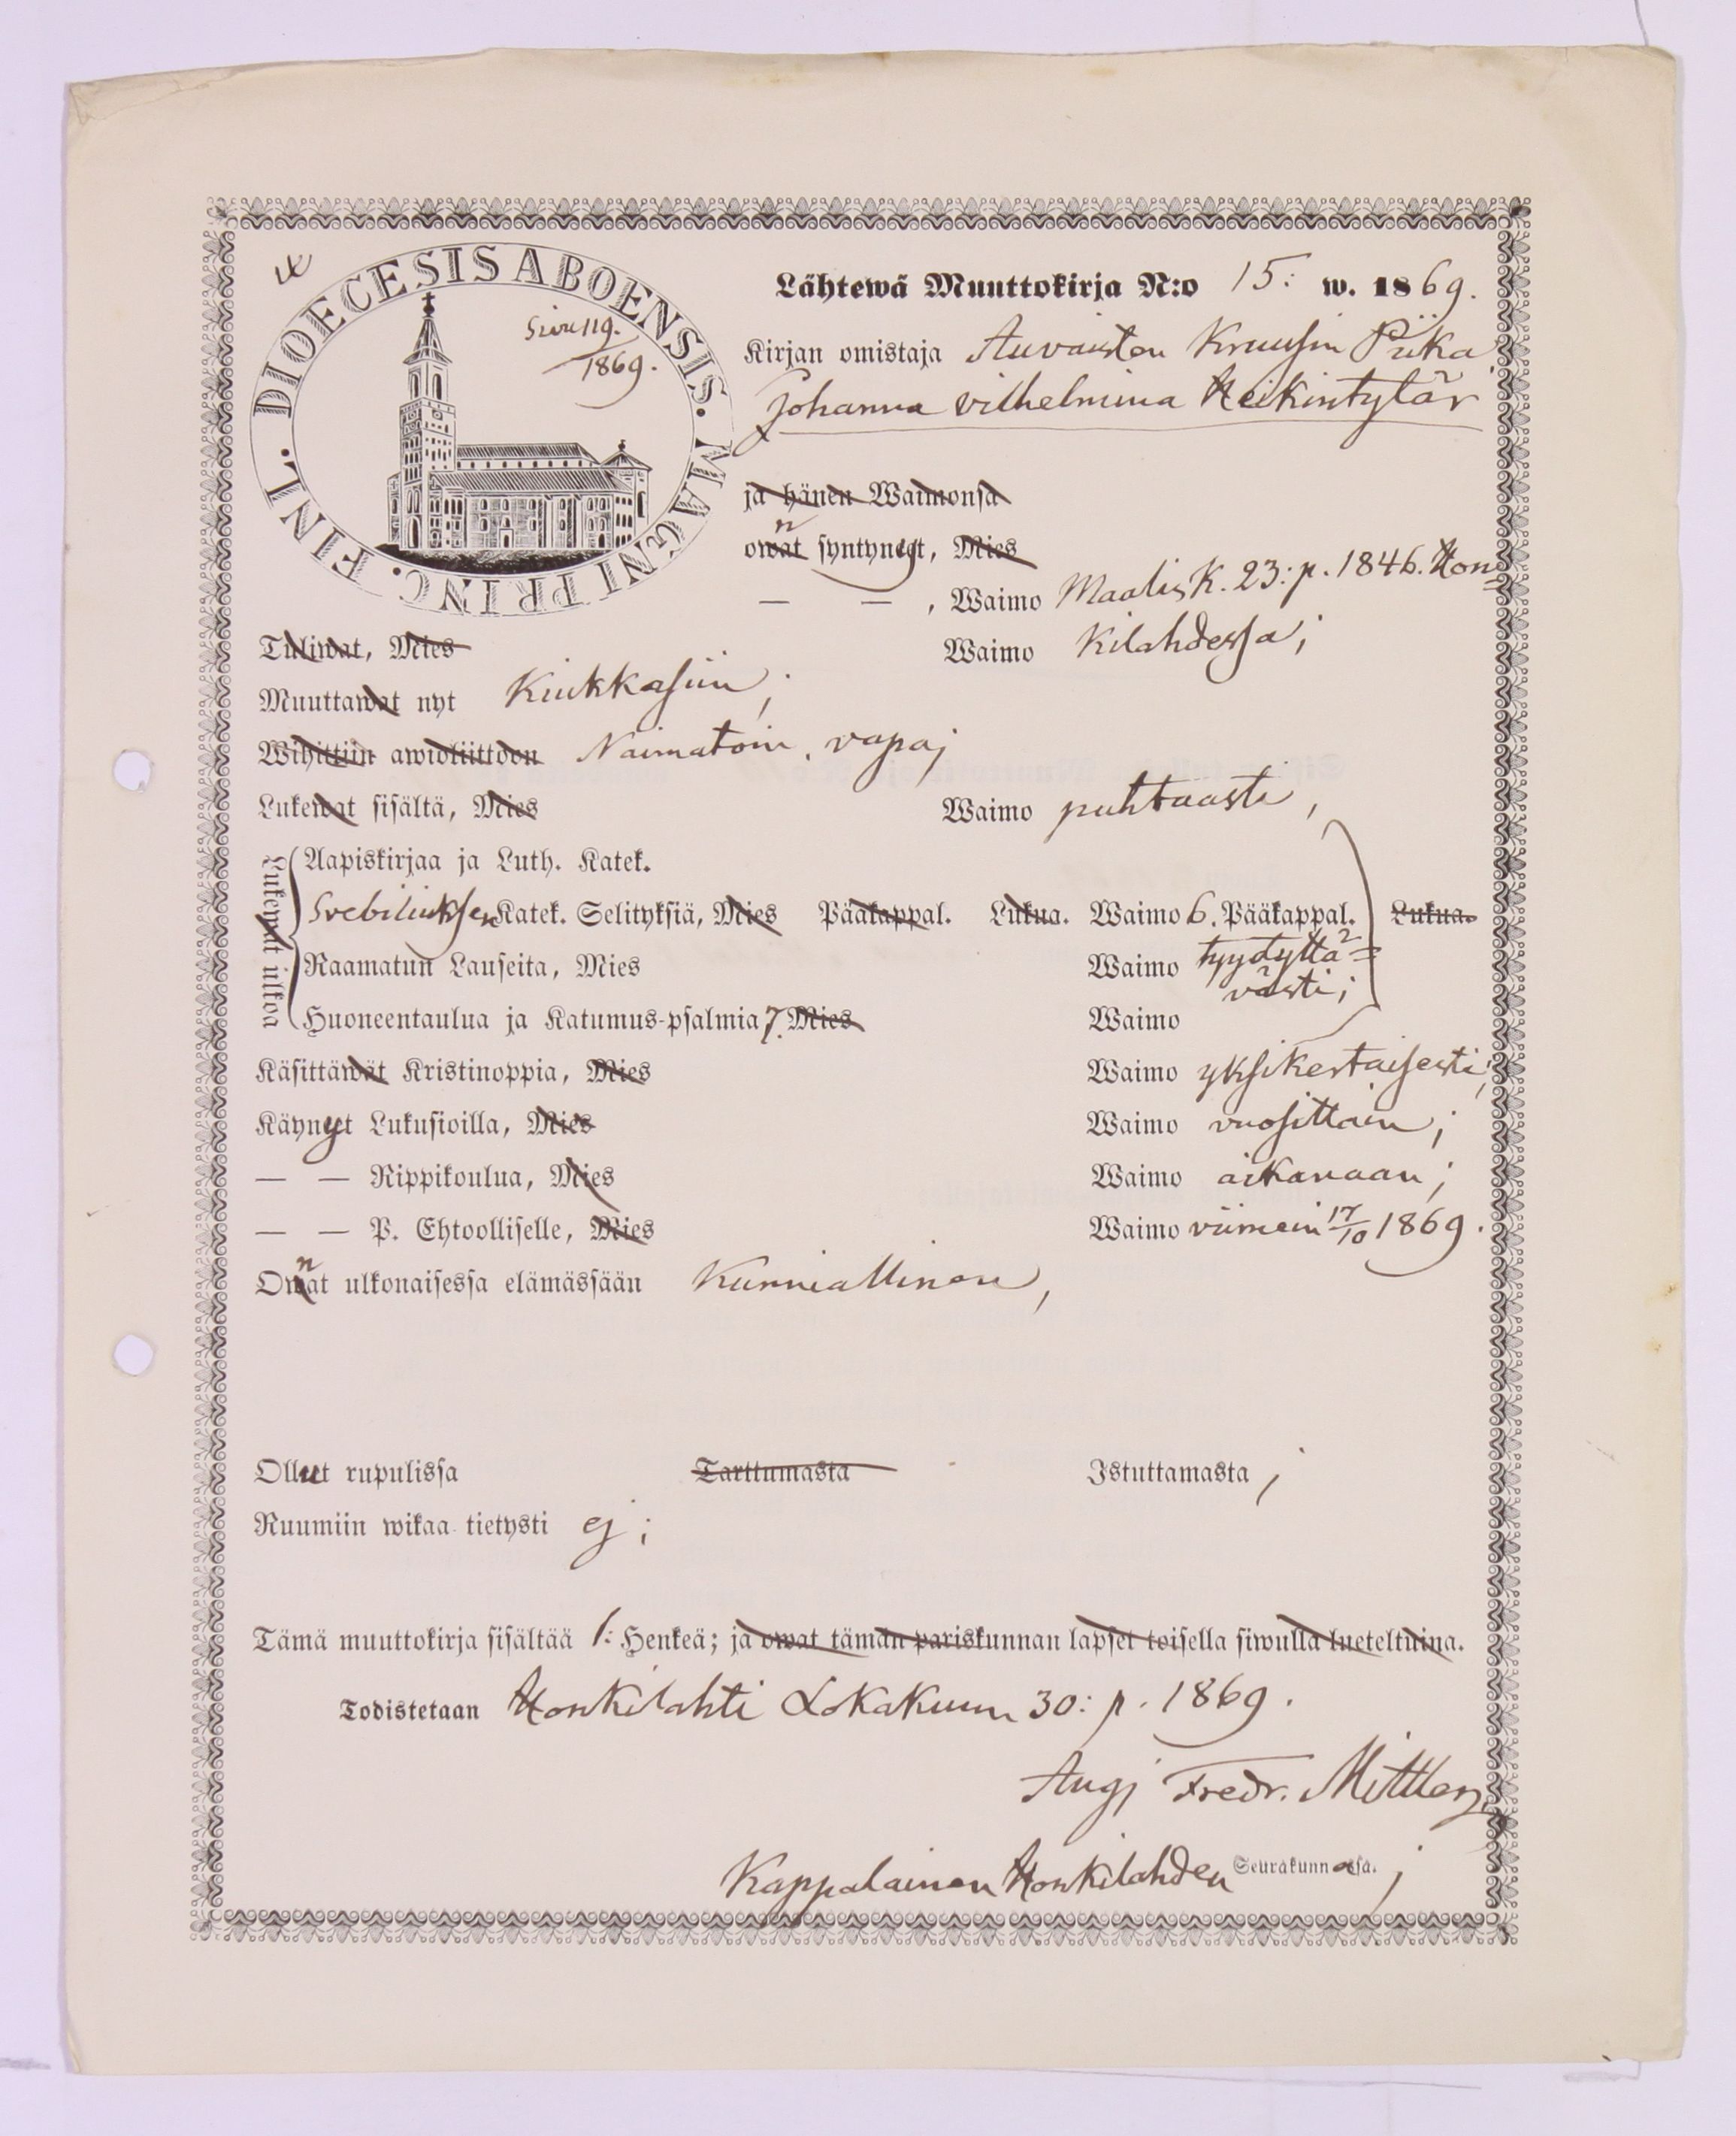 DIOECESIS ABOENSIS. MAGNI PRINC. FINL.
Sivu 119.
1869.
Lähtewä Muuttokirja N:o 15: w. 1869.
Kirjan omistaja Auvaisten Kruusin Piika
Johanna Vilhelmina Heikintytär
ja hänen Waimonsa
owat n syntynyt, Mies
— — , Waimo Maalisk. 23: p. 1846. Hon=
Tuliwat, Mies Waimo kilahdessa;
Muuttawat nyt Kiukkasiin;
Wihittiin awioliittoon Naimatoin, vapa;
Lukewat sisältä, Mies Waimo puhtaasti,
Lukewat ulkoa
Aapiskirjaa ja Luth. Katek.
Svebiliuksen Katek. Selityksiä, Mies Pääkappal. Lukua. Waimo 6. Pääkappal. Lukua.
Raamatun Lauseita, Mies Waimo tyydyttä=
västi;
Huoneentaulua ja Katumus-psalmia 7. Mies Waimo
Käsittäwät Kristinoppia, Mies Waimo yksikertaisesti;
Käynyt Lukusioilla, Mies Waimo vuosittain;
— — Rippikoulua, Mies Waimo aikanaan;
— — P. Ehtoolliselle, Mies Waimo viimein 17/10 1869.
Owat n ulkonaisessa elämässään Kunniallinen,
Ollut rupulissa Tarttumasta Istuttamasta;
Ruumiin wikaa tietysti ej;
Tämä muuttokirja sisältää 1: Henkeä; ja owat tämän pariskunnan lapset toisella siwulla lueteltuina.
Todistetaan Honkilahti Lokakuun 30: p. 1869.
Fredr.
Kappalainen Honkilahden Seurakunnasa.